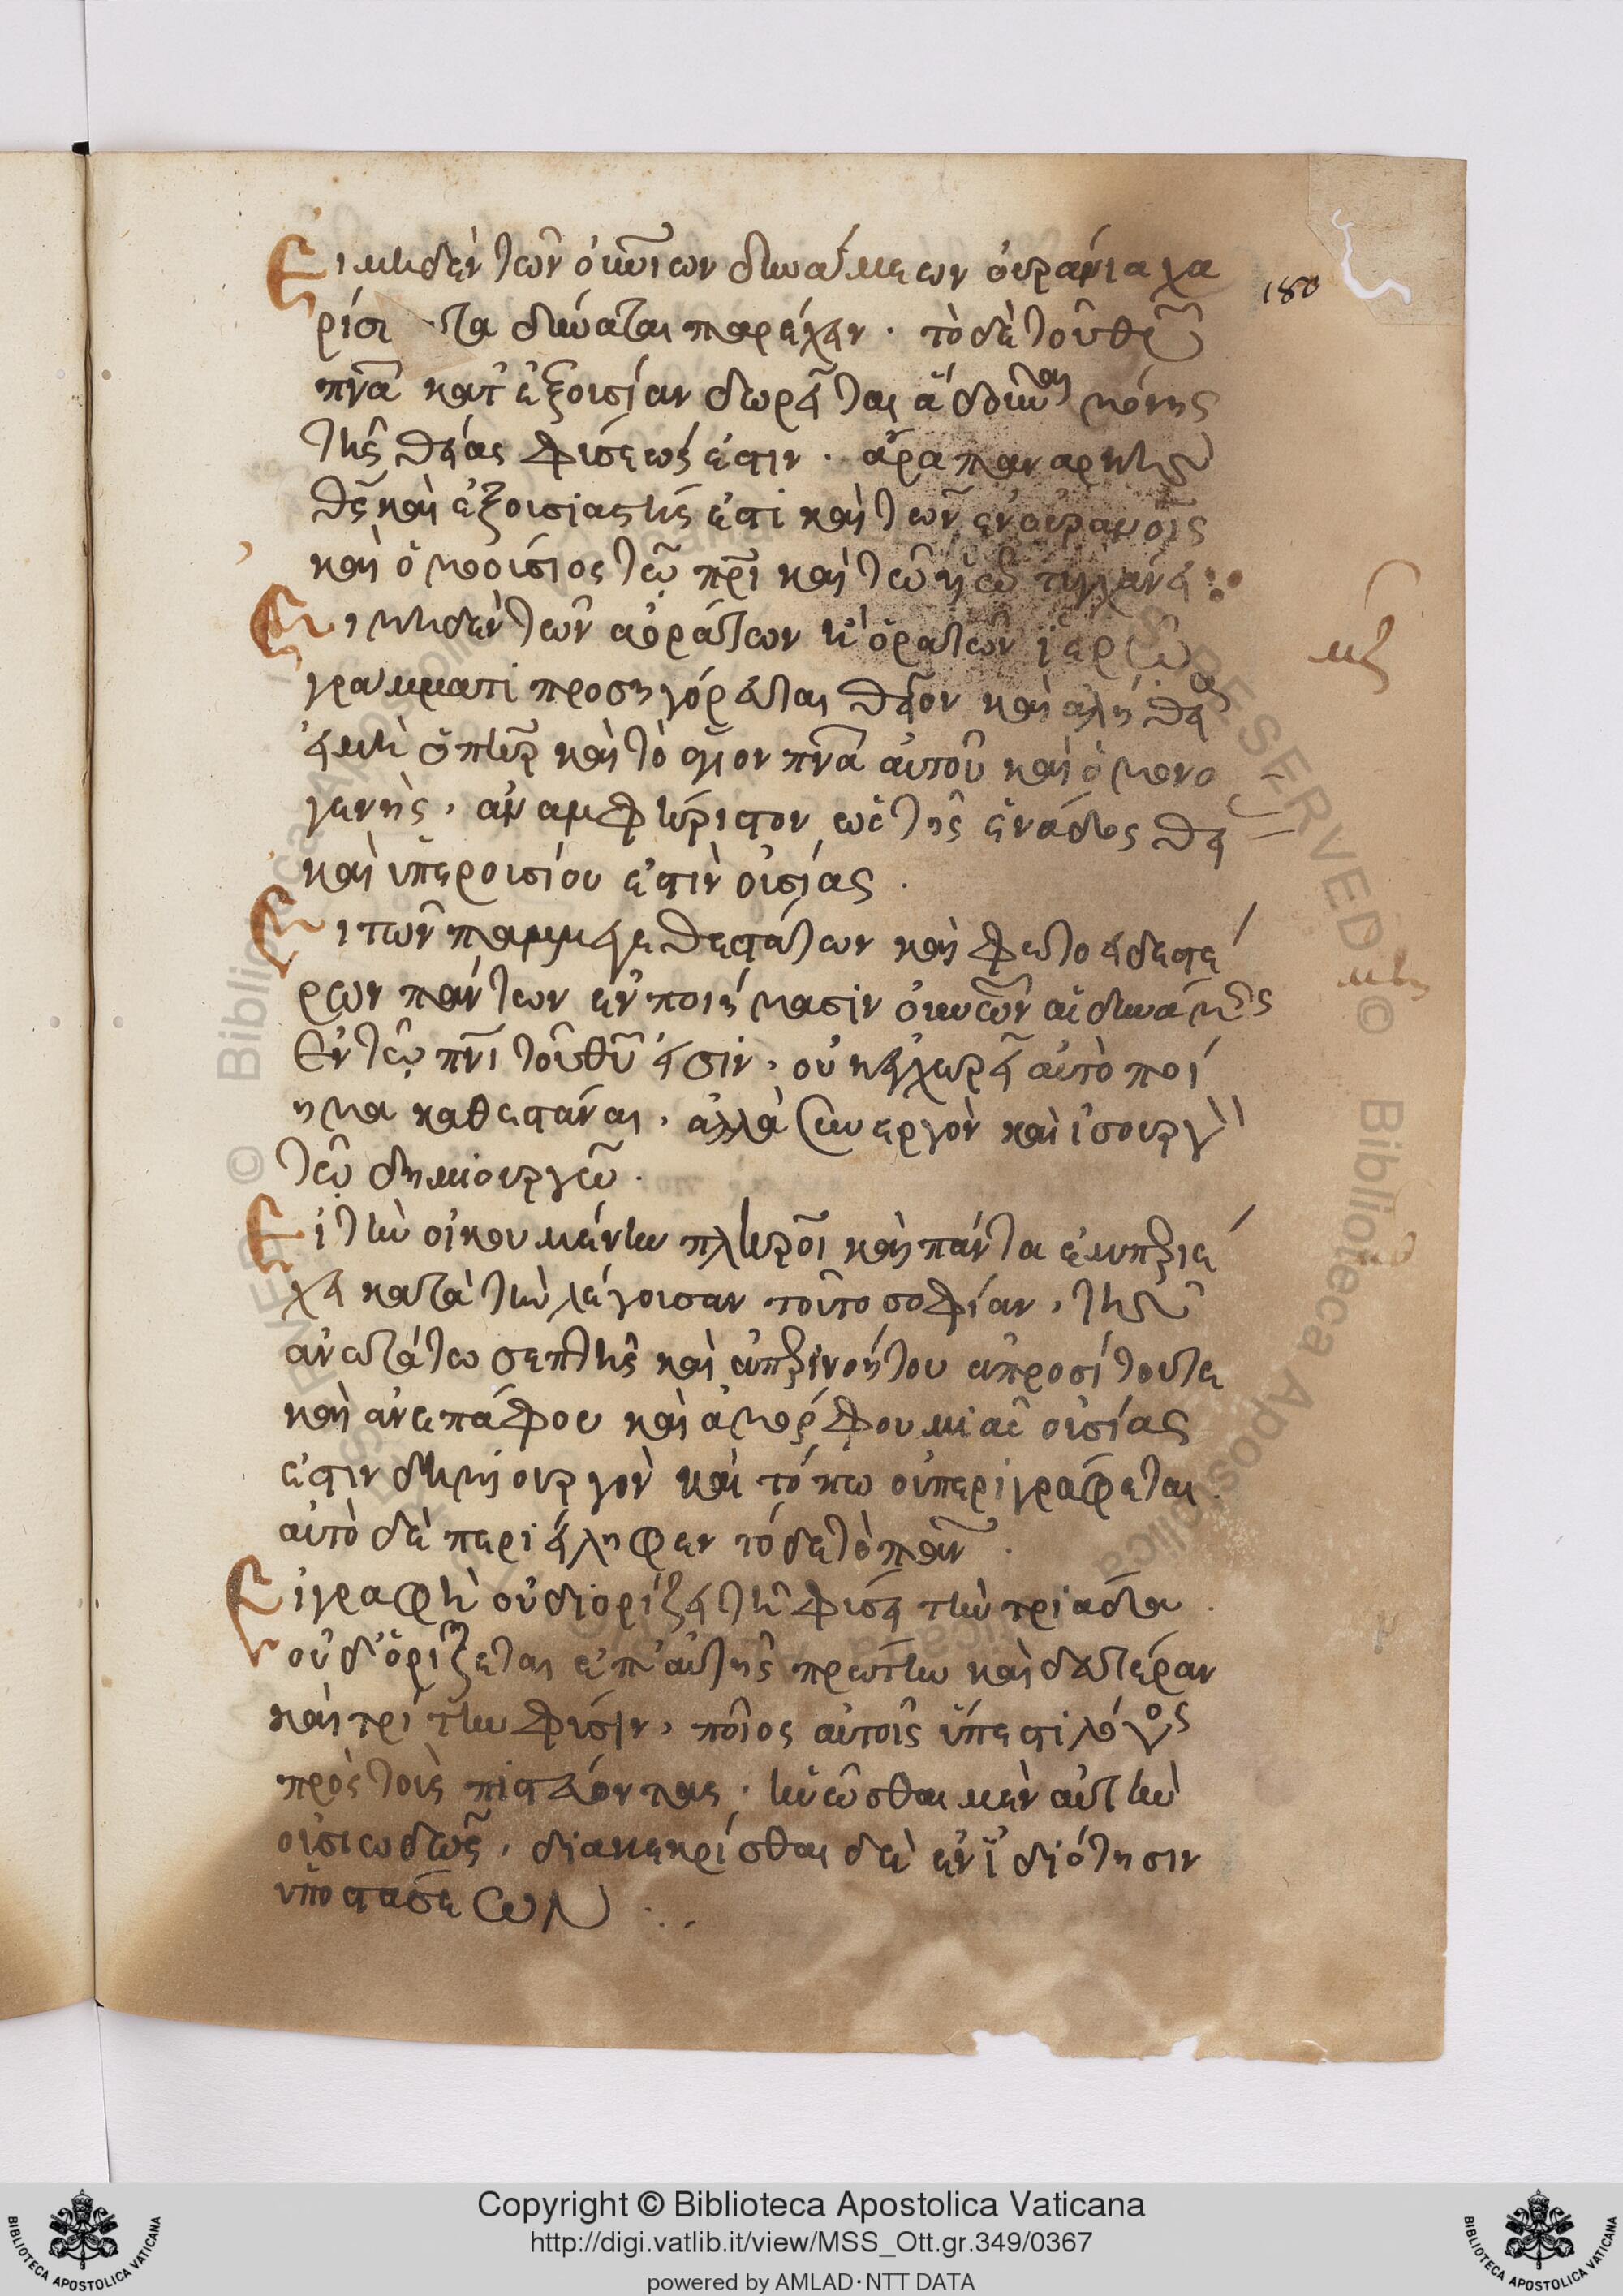 Εἰ μηδὲν τῶν ὁσίων δυνάμεων οὐράνια χα
ρίσματα δύναται παρέχειν · τὸ δὲ τοῦ θῦ
πνᾶ κατ' ἐξουσίαν δωρεῖται ἃ δοῦναι μόνης
τῆς θείας φύσεώς ἐστιν · ἄρα παναρκὴς
θς καὶ ἐξουσιαστής ἐστι καὶ τῶν ἐν οὐρανοῖς
καὶ ὁμοούσιος τῷ πρι καὶ τῷ υἱῷ τυγχάνει :
Εἰ μηδὲν τῶν ἀοράτων κ' ὁρατῶν ἱερῷ
γράμματι προσηγόρευται θεῖον καὶ ἀληθείᾳ
εἰ μὴ ὁ πηρ καὶ τὸ ἅγιον πνᾶ αὐτοῦ καὶ ὁ μονο
γενὴς, ἀναμφήριστον ὡς τῆς ἑνάδος θει
καὶ ὑπερουσίου ἐστὶν οὐσίας .
Εἰ τῶν παμμεγεθεστάτων καὶ φωτοειδεστέ
ρων πάντων ἐν ποιήμασιν οὐνῶν αἱ δυνάμεις
Ἐν τῷ πνι τοῦ θῦ εἰσίν, οὐκ ἐγχωρεῖ αὐτὸ ποί
ημα καθεστάναι, ἀλλὰ συνεργὸν καὶ ἰσουργὸν
τῷ δημιουργῷ .
Εἰ τὴν οἰκουμένην πληροῖ καὶ πάντα ἐμπεριέ
χει κατὰ τὴν λέγουσαν τοῦτο σοφίαν, τῆς
ἀνωτάτω σεπτῆς καὶ ἀπερινοήτου ἀπροσίτου τε
καὶ ἀνεπάφου καὶ ἀμόρφου μιᾶς οὐσίας
ἐστιν δημιουργὸν καὶ τόπῳ οὐ περιγράφεται .
αὐτὸ δὲ περιείληφεν τόδε τὸ πᾶν .
Εἰ γραφὴ οὐ διορίζει τῇ φύσει τὴν τριάδα .
οὐδ' ὁρίζεται ἐπ' αὐτῆς πρώτην καὶ δευτέραν
καὶ τρίτην φύσιν, ποῖος αὐτοῖς ὕπεστι λόγος
πρὸς τοὺς πιστεύοντας · ἡνῶσθαι μὲν αὐτὴν
οὐσιωδῶς, διακεκρίσθαι δὲ ἐν ἰδιότησιν
ὑποστάσεων ...
180
μζ
Copyright © Biblioteca Apostolica Vaticana
http://digi.vatlib.it/view/MSS_Ott.gr.349/0367
powered by AMLAD·NTT DATA
BIBLIOTECA APOSTOLICA VATICANA
BIBLIOTECA APOSTOLICA VATICANA